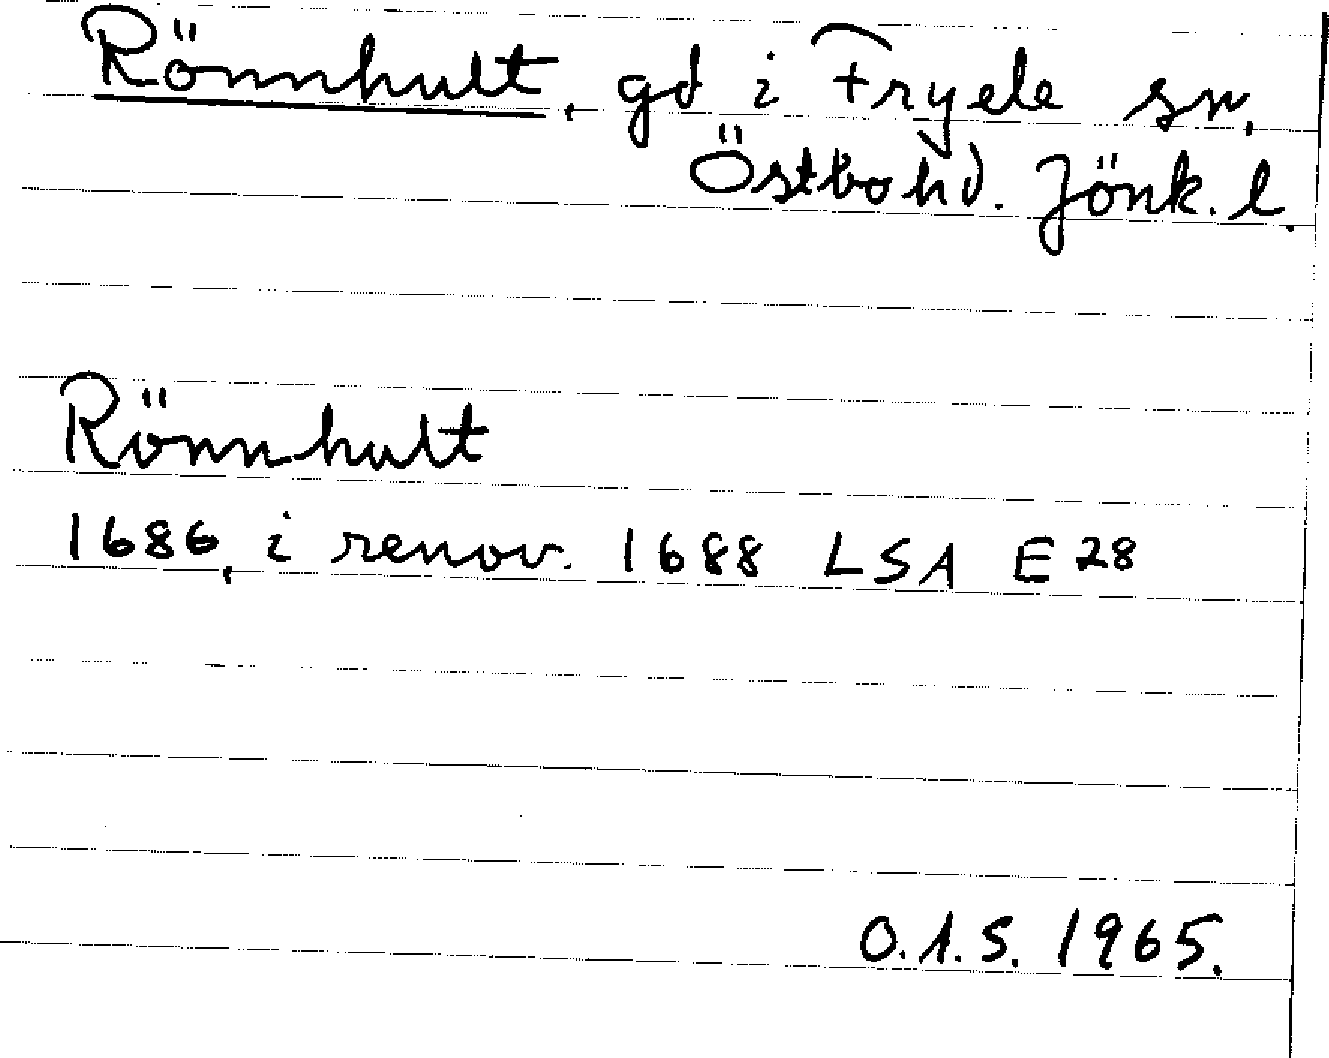 Rönnhult, gd i Fryele sn.
Östbo hd. Jönk. l.
Rönnhult
1686, i renov. 1688 LSA E 28
O.A.S. 1965.